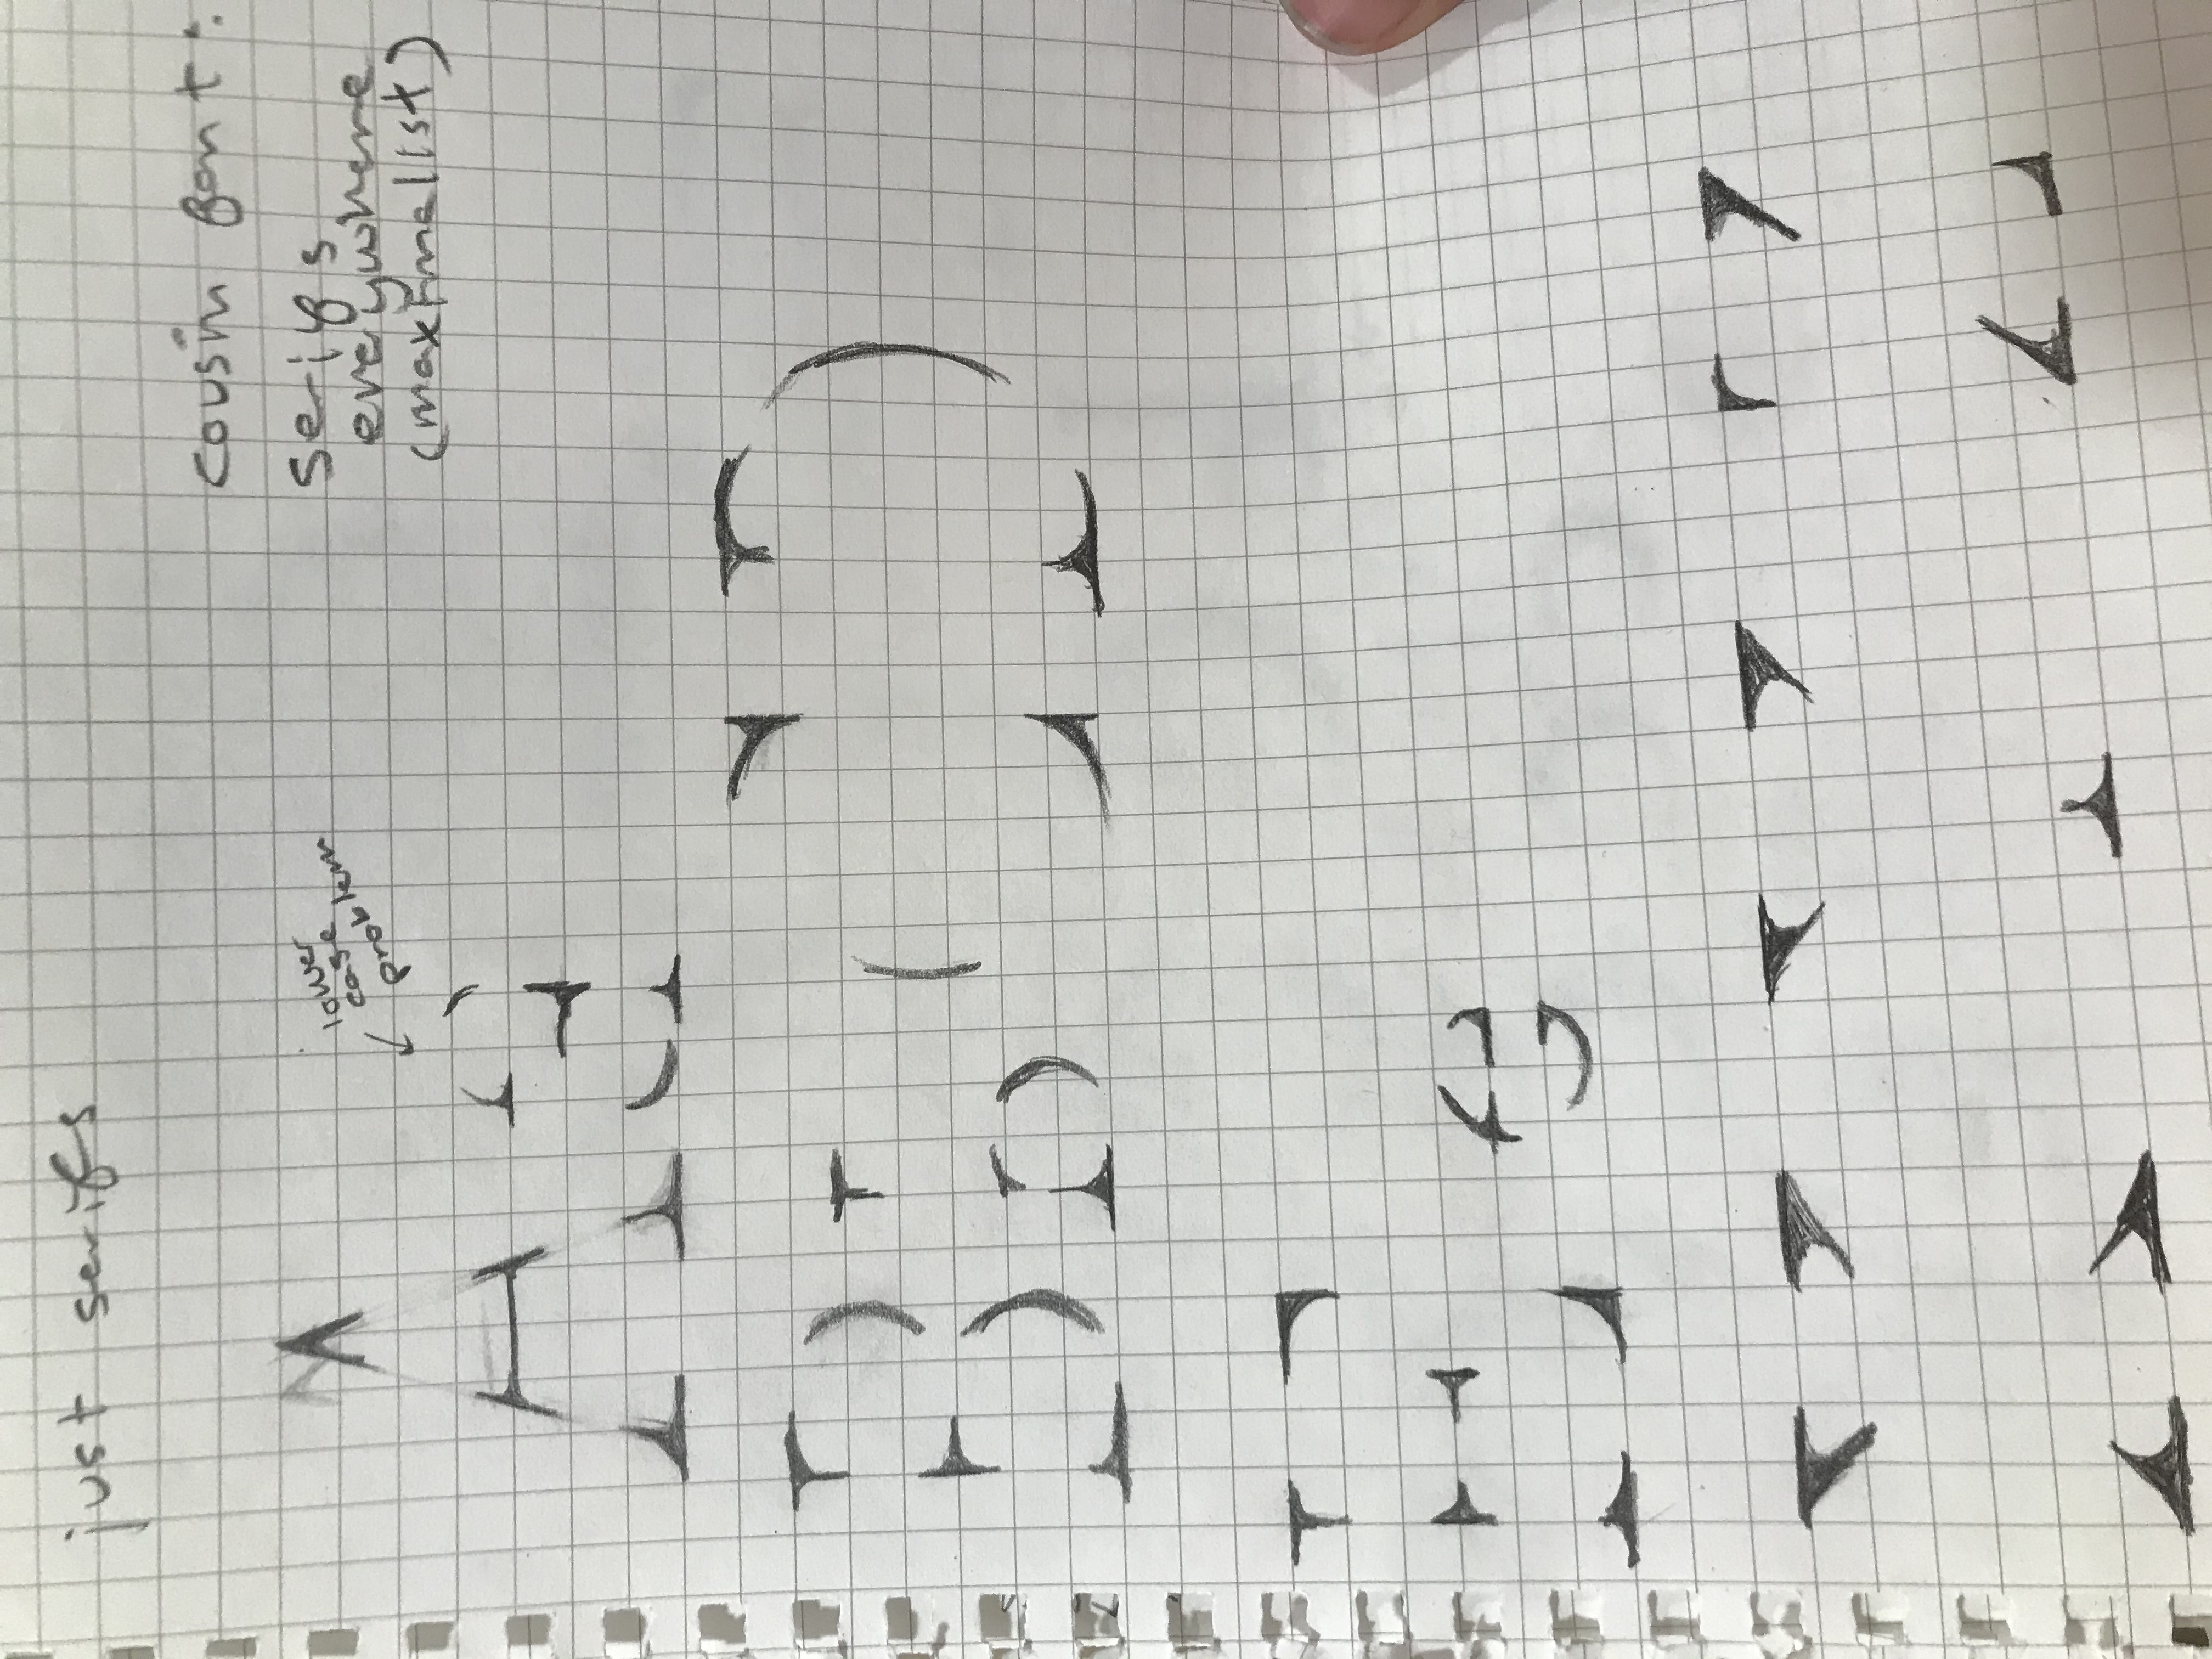 just serifs
cousin font:
serifs
everywhere
(maximalist)
lower
case
problem
A a
B b C D
E e
X Y Z